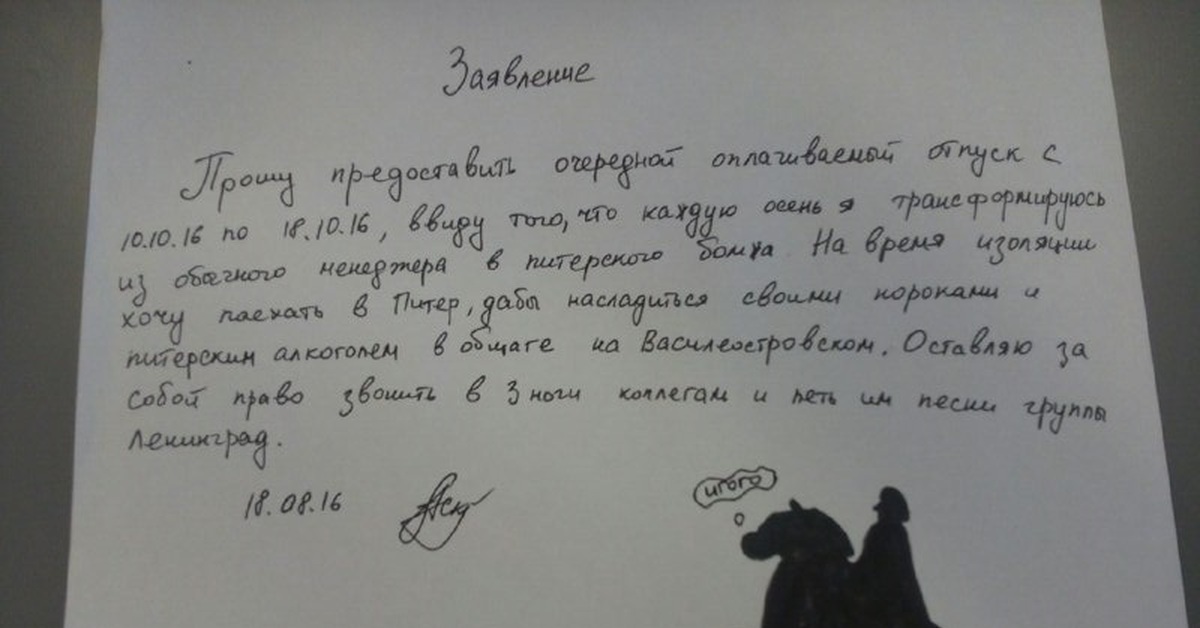 Заявление
Прошу предоставить очередной оплачиваемый отпуск с
10.10.16 по 18.10.16, ввиду того, что каждую осень я трансформируюсь
из обычного менеджера в питерского бомжа На время изоляции
хочу паехать в Питер, дабы насладиться своими пороками и
питерским алкоголем в общаге на Василеостровском. Оставляю за
собой право звонить в 3 ночи коллегам и петь им песни группы
Ленинград.
18.08.16
игого